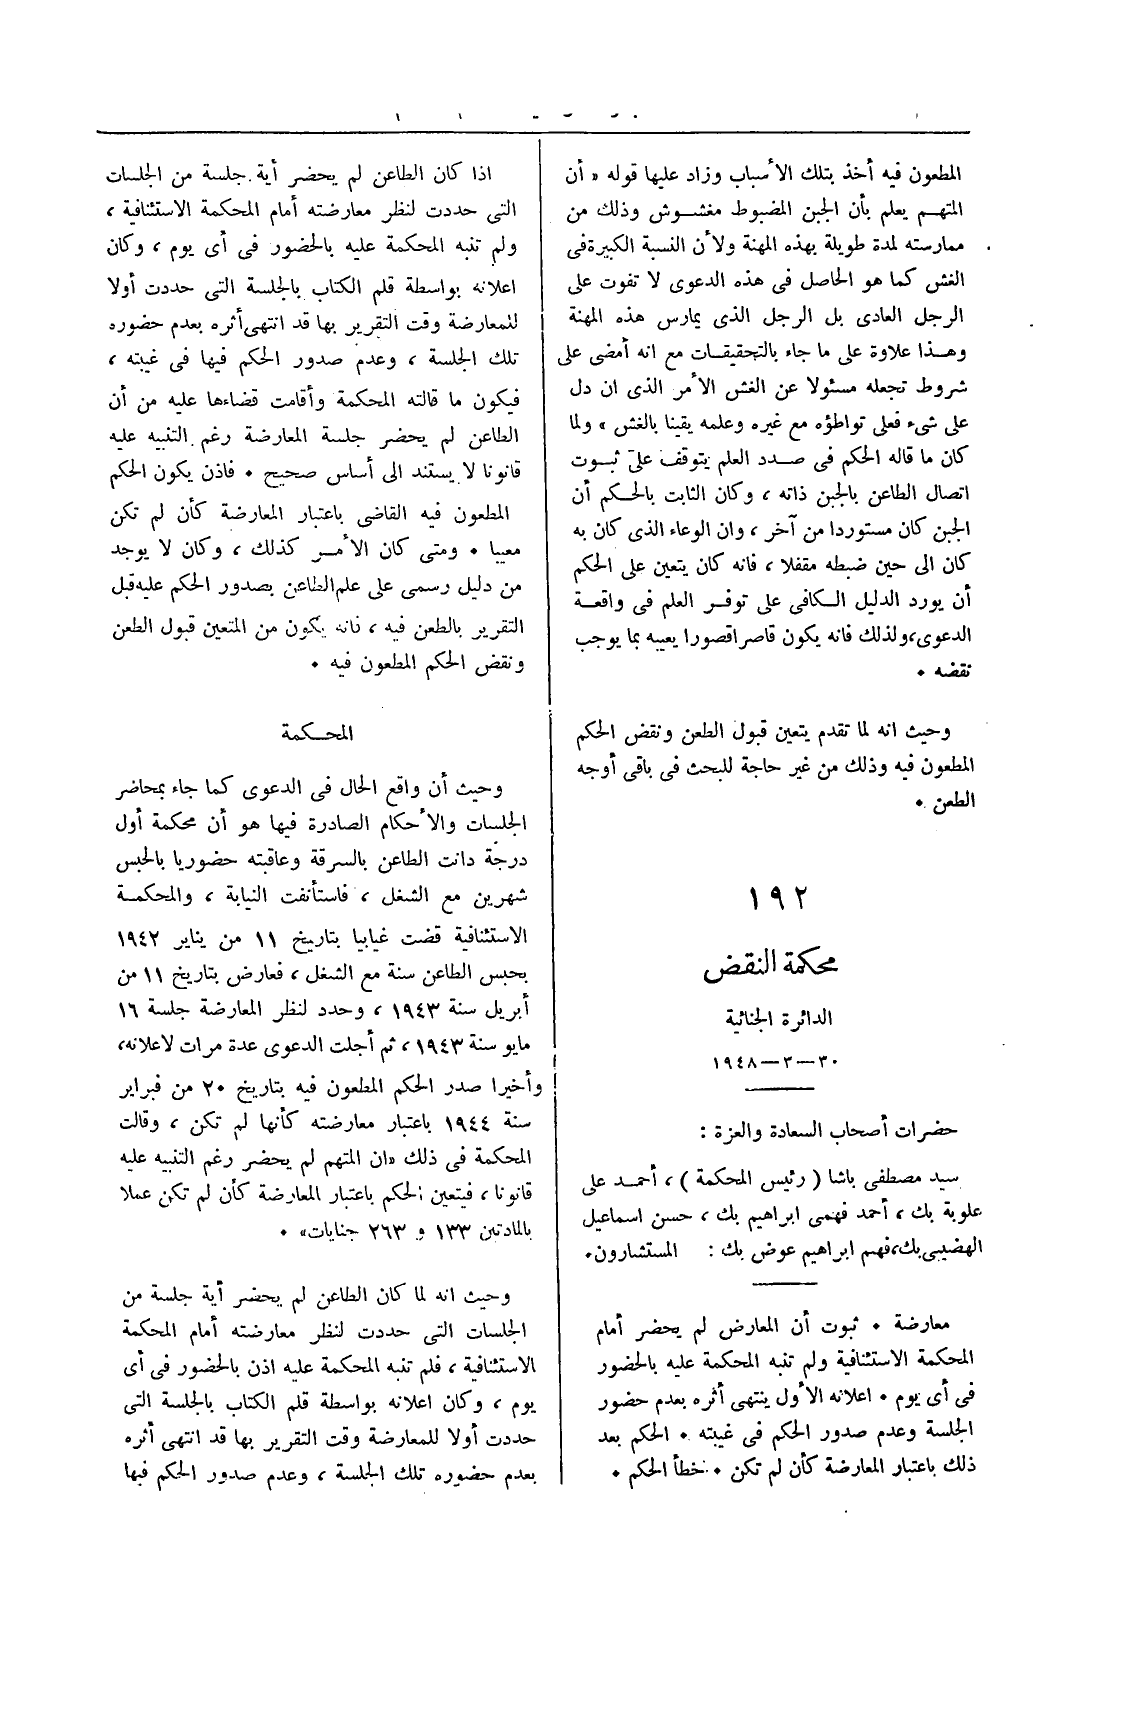 المطعون فيه أخذ بتلك الأسباب وزاد عليها قوله « أن
المتهم يعلم بأن الجبن المضبوط مغشوش وذلك من
ممارسته لمدة طويلة بهذه المهنة ولأن النسبة الكبيرة فى
الغش كما هو الحاصل فى هذه الدعوى لا تفوت على
الرجل العادى بل الرجل الذى يمارس هذه المهنة
وهذا علاوة على ما جاء بالتحقيقات مع انه أمضى على
شروط تجعله مسئولا عن الغش الأمر الذى ان دل
على شىء فعلى تواطؤه مع غيره وعلمه يقينا بالغش » ولما
كان ما قاله الحكم فى صدد العلم يتوقف على ثبوت
اتصال الطاعن بالجبن ذاته ، وكان الثابت بالحكم أن
الجبن كان مستوردا من آخر ، وان الوعاء الذى كان به
كان الى حين ضبطه مقفلا ، فانه كان يتعين على الحكم
أن يورد الدليل الكافى على توفر العلم فى واقعة
الدعوى، ولذلك فانه يكون قاصرا قصورا يعيبه بما يوجب
نقضه .
وحيث انه لما تقدم يتعين قبول الطعن ونقض الحكم
المطعون فيه وذلك من غير حاجة للبحث فى باقى أوجه
الطعن .
١٩٢
محكمة النقض
الدائرة الجنائية
٣٠ — ٣ — ١٩٤٨
حضرات أصحاب السعادة والعزة :
سيد مصطفى باشا ( رئيس المحكمة ) ، أحمد على
علوبة بك ، أحمد فهمى ابراهيم بك ، حسن اسماعيل
الهضيبى بك، فهيم ابراهيم عوض بك : المستشارون.
معارضة . ثبوت أن المعارض لم يحضر أمام
المحكمة الاستئنافية ولم تنبه المحكمة عليه بالحضور
فى أى يوم . اعلانه الأول ينتهى أثره بعدم حضور
الجلسة وعدم صدور الحكم فى غيبته . الحكم بعد
ذلك باعتبار المعارضة كأن لم تكن . خطأ الحكم .
اذا كان الطاعن لم يحضر أية جلسة من الجلسات
التى حددت لنظر معارضته أمام المحكمة الاستئنافية ،
ولم تنبه المحكمة عليه بالحضور فى أى يوم ، وكان
اعلانه بواسطة قلم الكتاب بالجلسة التى حددت أولا
للمعارضة وقت التقرير بها قد انتهى أثره بعدم حضوره
تلك الجلسة ، وعدم صدور الحكم فيها فى غيبته ،
فيكون ما قالته المحكمة وأقامت قضاءها عليه من أن
الطاعن لم يحضر جلسة المعارضة رغم التنبيه عليه
قانونا لا يستند الى أساس صحيح . فاذن يكون الحكم
المطعون فيه القاضى باعتبار المعارضة كأن لم تكن
معيبا . ومتى كان الأمر كذلك ، وكان لا يوجد
من دليل رسمى على علم الطاعن بصدور الحكم عليه قبل
التقرير بالطعن فيه ، فانه يكون من المتعين قبول الطعن
ونقض الحكم المطعون فيه .
المحكمة
وحيث أن واقع الحال فى الدعوى كما جاء بمحاضر
الجلسات والأحكام الصادرة فيها هو أن محكمة أول
درجة دانت الطاعن بالسرقة وعاقبته حضوريا بالحبس
شهرين مع الشغل ، فاستأنفت النيابة ، والمحكمة
الاستئنافية قضت غيابيا بتاريخ ١١ من يناير ١٩٤٢
بحبس الطاعن سنة مع الشغل ، فعارض بتاريخ ١١ من
أبريل سنة ١٩٤٣ ، وحدد لنظر المعارضة جلسة ١٦
مايو سنة ١٩٤٣ ، ثم أجلت الدعوى عدة مرات لاعلانه،
وأخيرا صدر الحكم المطعون فيه بتاريخ ٢٠ من فبراير
سنة ١٩٤٤ باعتبار معارضته كأنها لم تكن ، وقالت
المحكمة فى ذلك «ان المتهم لم يحضر رغم التنبيه عليه
قانونا ، فيتعين الحكم باعتبار المعارضة كأن لم تكن عملا
بالمادتين ١٣٣ و ٢٦٣ جنايات» .
وحيث انه لما كان الطاعن لم يحضر أية جلسة من
الجلسات التى حددت لنظر معارضته أمام المحكمة
الاستئنافية ، فلم تنبه المحكمة عليه اذن بالحضور فى أى
يوم ، وكان اعلانه بواسطة قلم الكتاب بالجلسة التى
حددت أولا للمعارضة وقت التقرير بها قد انتهى أثره
بعدم حضوره تلك الجلسة ، وعدم صدور الحكم فيها